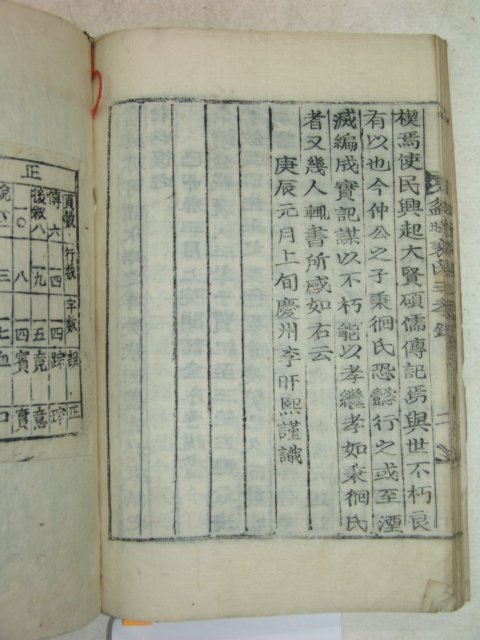 盆城裵氏三孝錄
二
楔焉使民興起大賢碩儒傳記焉與世不朽良
有以也今仲公之子秉徊氏恐懿行之或至湮
滅編成實記謀以不朽能以孝繼孝如秉徊氏
者又幾人輒書所感如右云
庚辰元月上旬慶州李旰熙謹識
正
頁數 行數 字數 誤 正
傳六 一四 一四 踪 琮
後敍八 一九 五 竟 意
一〇 八 一四 實